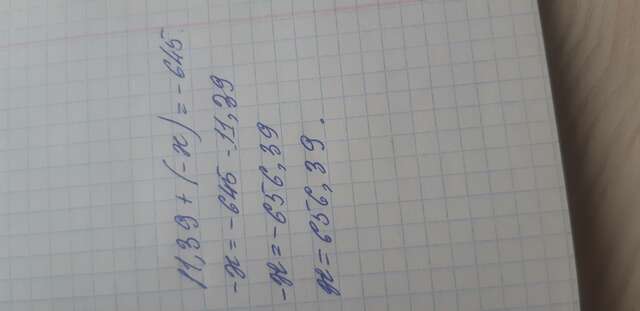 11,39 + (-x) = -645.
-x = -645 - 11,39
-x = -656,39
x = 656,39.